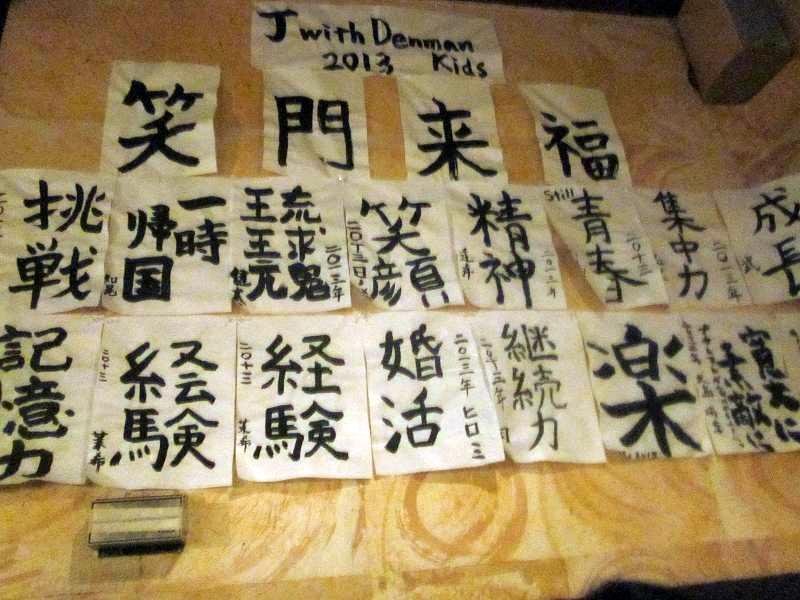 J with Denman
2013 Kids
笑門来福
挑戦
一時
帰国
琉球魂
二〇一三年
笑顔
精神
二〇一三年
Still
青春
二〇十三
集中力
二〇一三年
成長
記憶力
経験
二〇十三
美希
経験
二〇十三
美希
婚活
二〇一三年 ヒロミ
継続力
楽
寛大に
素敵に